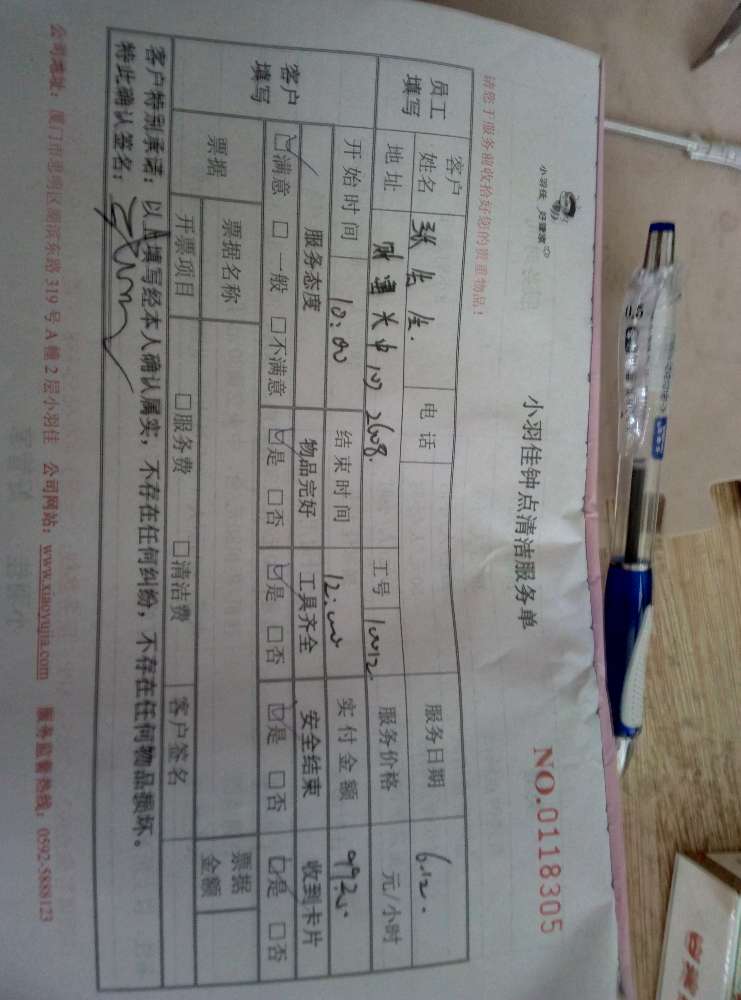 小羽佳 好管家
小羽佳钟点清洁服务单
NO.0118305
请您于服务前收拾好您的贵重物品！
员工填写
客户姓名 张先生. 电话 服务日期 6.12.
地址 2608. 工号 10012 服务价格 元/小时
开始时间 10:00 结束时间 12:00 实付金额
客户填写
服务态度 物品完好 工具齐全 安全结束 收到卡片
☑满意 □一般 □不满意 ☑是 □否 ☑是 □否 ☑是 □否 ☑是 □否
票据 票据名称 票据金额
开票项目 □服务费 □清洁费 客户签名
客户特别承诺：以上填写经本人确认属实；不存在任何纠纷，不存在任何物品损坏。
特此确认签名：
公司地址：厦门市思明区湖滨东路 319 号 A 幢 2 层小羽佳 公司网站：www.xiaoyujia.com 服务监督热线：0592-5888123